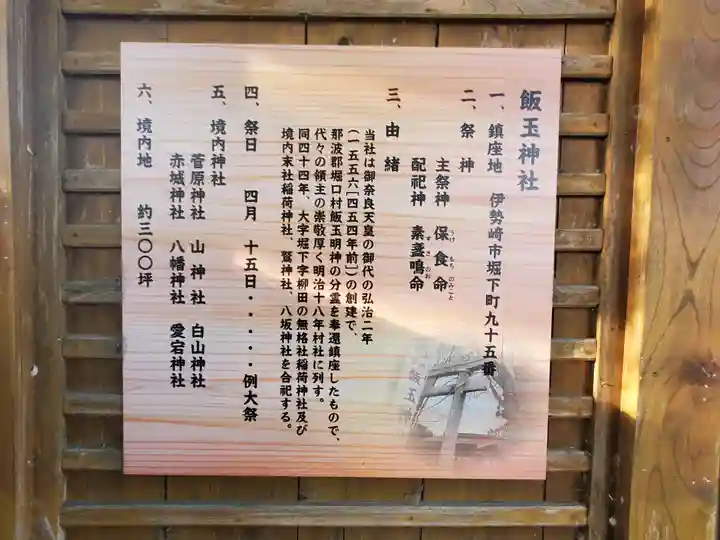 飯玉神社
一、鎮座地 伊勢崎市堀下町九十五番
二、祭神
主祭神 保食命
うけ もち のみこと
配祀神 素盞鳴命
すさ のお
三、由緒
当社は御奈良天皇の御代の弘治二年
(一五五六[四五四年前])の創建で、
那波郡堀口村飯玉明神の分霊を奉還鎮座したもので、
代々の領主の崇敬厚く明治十八年村社に列す。
同四十四年、大字堀下字柳田の無格社稲荷神社及び
境内末社稲荷神社、鷲神社、八坂神社を合祀する。
四、祭日 四月 十五日・・・・・例大祭
五、境内神社
菅原神社 山神社 白山神社
赤城神社 八幡神社 愛宕神社
六、境内地 約三〇〇坪
飯玉神